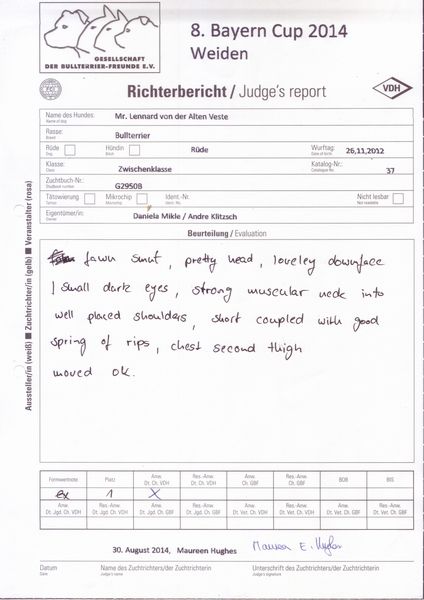 8. Bayern Cup 2014
Weiden
GESELLSCHAFT
DER BULLTERRIER-FREUNDE E.V.
Richterbericht / Judge's report
VDH
Name des Hundes: Mr. Lennard von der Alten Veste
Name of dog
Rasse: Bullterrier
Breed
Rüde Hündin Rüde Wurftag: 26,11,2012
Dog Bitch Date of birth
Klasse: Zwischenklasse Katalog-Nr.: 37
Class Catalogue No.
Zuchtbuch-Nr.: G2950B
Studbook number
Tätowierung Mikrochip Ident.-Nr. Nicht lesbar
Tattoo Microchip Ident. No. Not readable
Eigentümer/in: Daniela Mikle / Andre Klitzsch
Owner
Beurteilung / Evaluation
fawn smut, pretty head, loveley downface
, small dark eyes, strong muscular neck into
well placed shoulders, short coupled with good
spring of rips, chest second thigh
moved ok.
Aussteller/in (weiß) ■ Zuchtrichter/in (gelb) ■ Veranstalter (rosa)
Formwertnote Platz Anw. Dt. Ch. VDH Res.-Anw. Dt. Ch. VDH Anw. Ch. GBF Res.-Anw. Ch. GBF BOB BIS
ex 1 X
Anw. Dt. Jgd. Ch. VDH Res.-Anw. Dt. Jgd. Ch. VDH Anw. Dt. Jgd. Ch. GBF Res.-Anw. Dt. Jgd. Ch. GBF Anw. Dt. Vet. Ch. VDH Res.-Anw. Dt. Vet. Ch. VDH Anw. Dt. Vet. Ch. GBF Res.-Anw. Dt. Vet. Ch. GBF
30. August 2014, Maureen Hughes Maureen E. Hughes
Datum Name des Zuchtrichters/der Zuchtrichterin Unterschrift des Zuchtrichters/der Zuchtrichterin
Date Judge's name Judge's signature